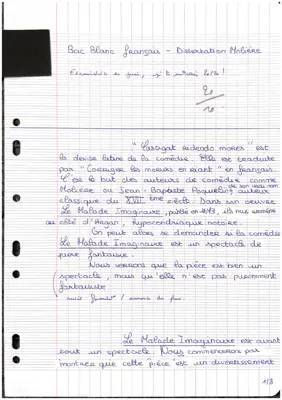 Bac Blanc français - Dissertation Molière
20
20
"Castigat ridendo mores" est
la devise latine de la comédie. Elle est traduite
par "Corriger les moeurs en riant" en français.
C'est le but des auteurs de comédie comme
Molière ou Jean-Baptiste Poquelin de son vrai nom, auteur
classique du XVII ème siècle. Dans son oeuvre
Le Malade Imaginaire, publiée en 1673, il nous
côté d'Argan, hypocondriaque notoire.
On peut alors se demander si la comédie
Le Malade Imaginaire est un spectacle de
pure fantaisie.
Nous verrons que la pièce est bien un
spectacle, mais qu'elle n'est pas purement
fantaisiste
Le Malade Imaginaire est avant
tout un spectacle. Nous commencerons par
montrer que cette pièce est un divertissement
1/3